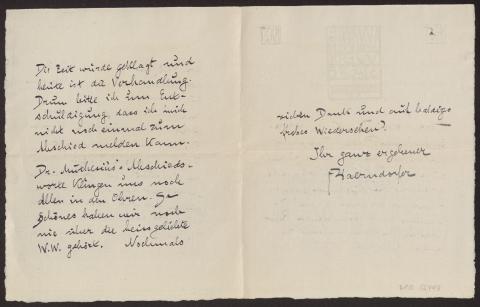 Die Zeit wurde geklagt und
heute ist die Verhandlung.
Drum bitte ich um Ent-
schuldigung, dass ich mich
nicht noch einmal zum
Abschied melden kann.
Dr. Muthesius's Abschieds-
worte klingen uns noch
Allen in den Ohren. So
Schönes haben wir noch
nie über die heissgeliebte
W.W. gehört. Nochmals
Dank und auf baldiges
frohes Wiedersehen!
Ihr ganz ergebener
2